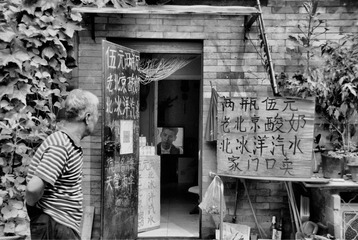 伍元两瓶
老北京酸奶
北冰洋汽水
两瓶伍元
老北京酸奶
北冰洋汽水
家门口卖